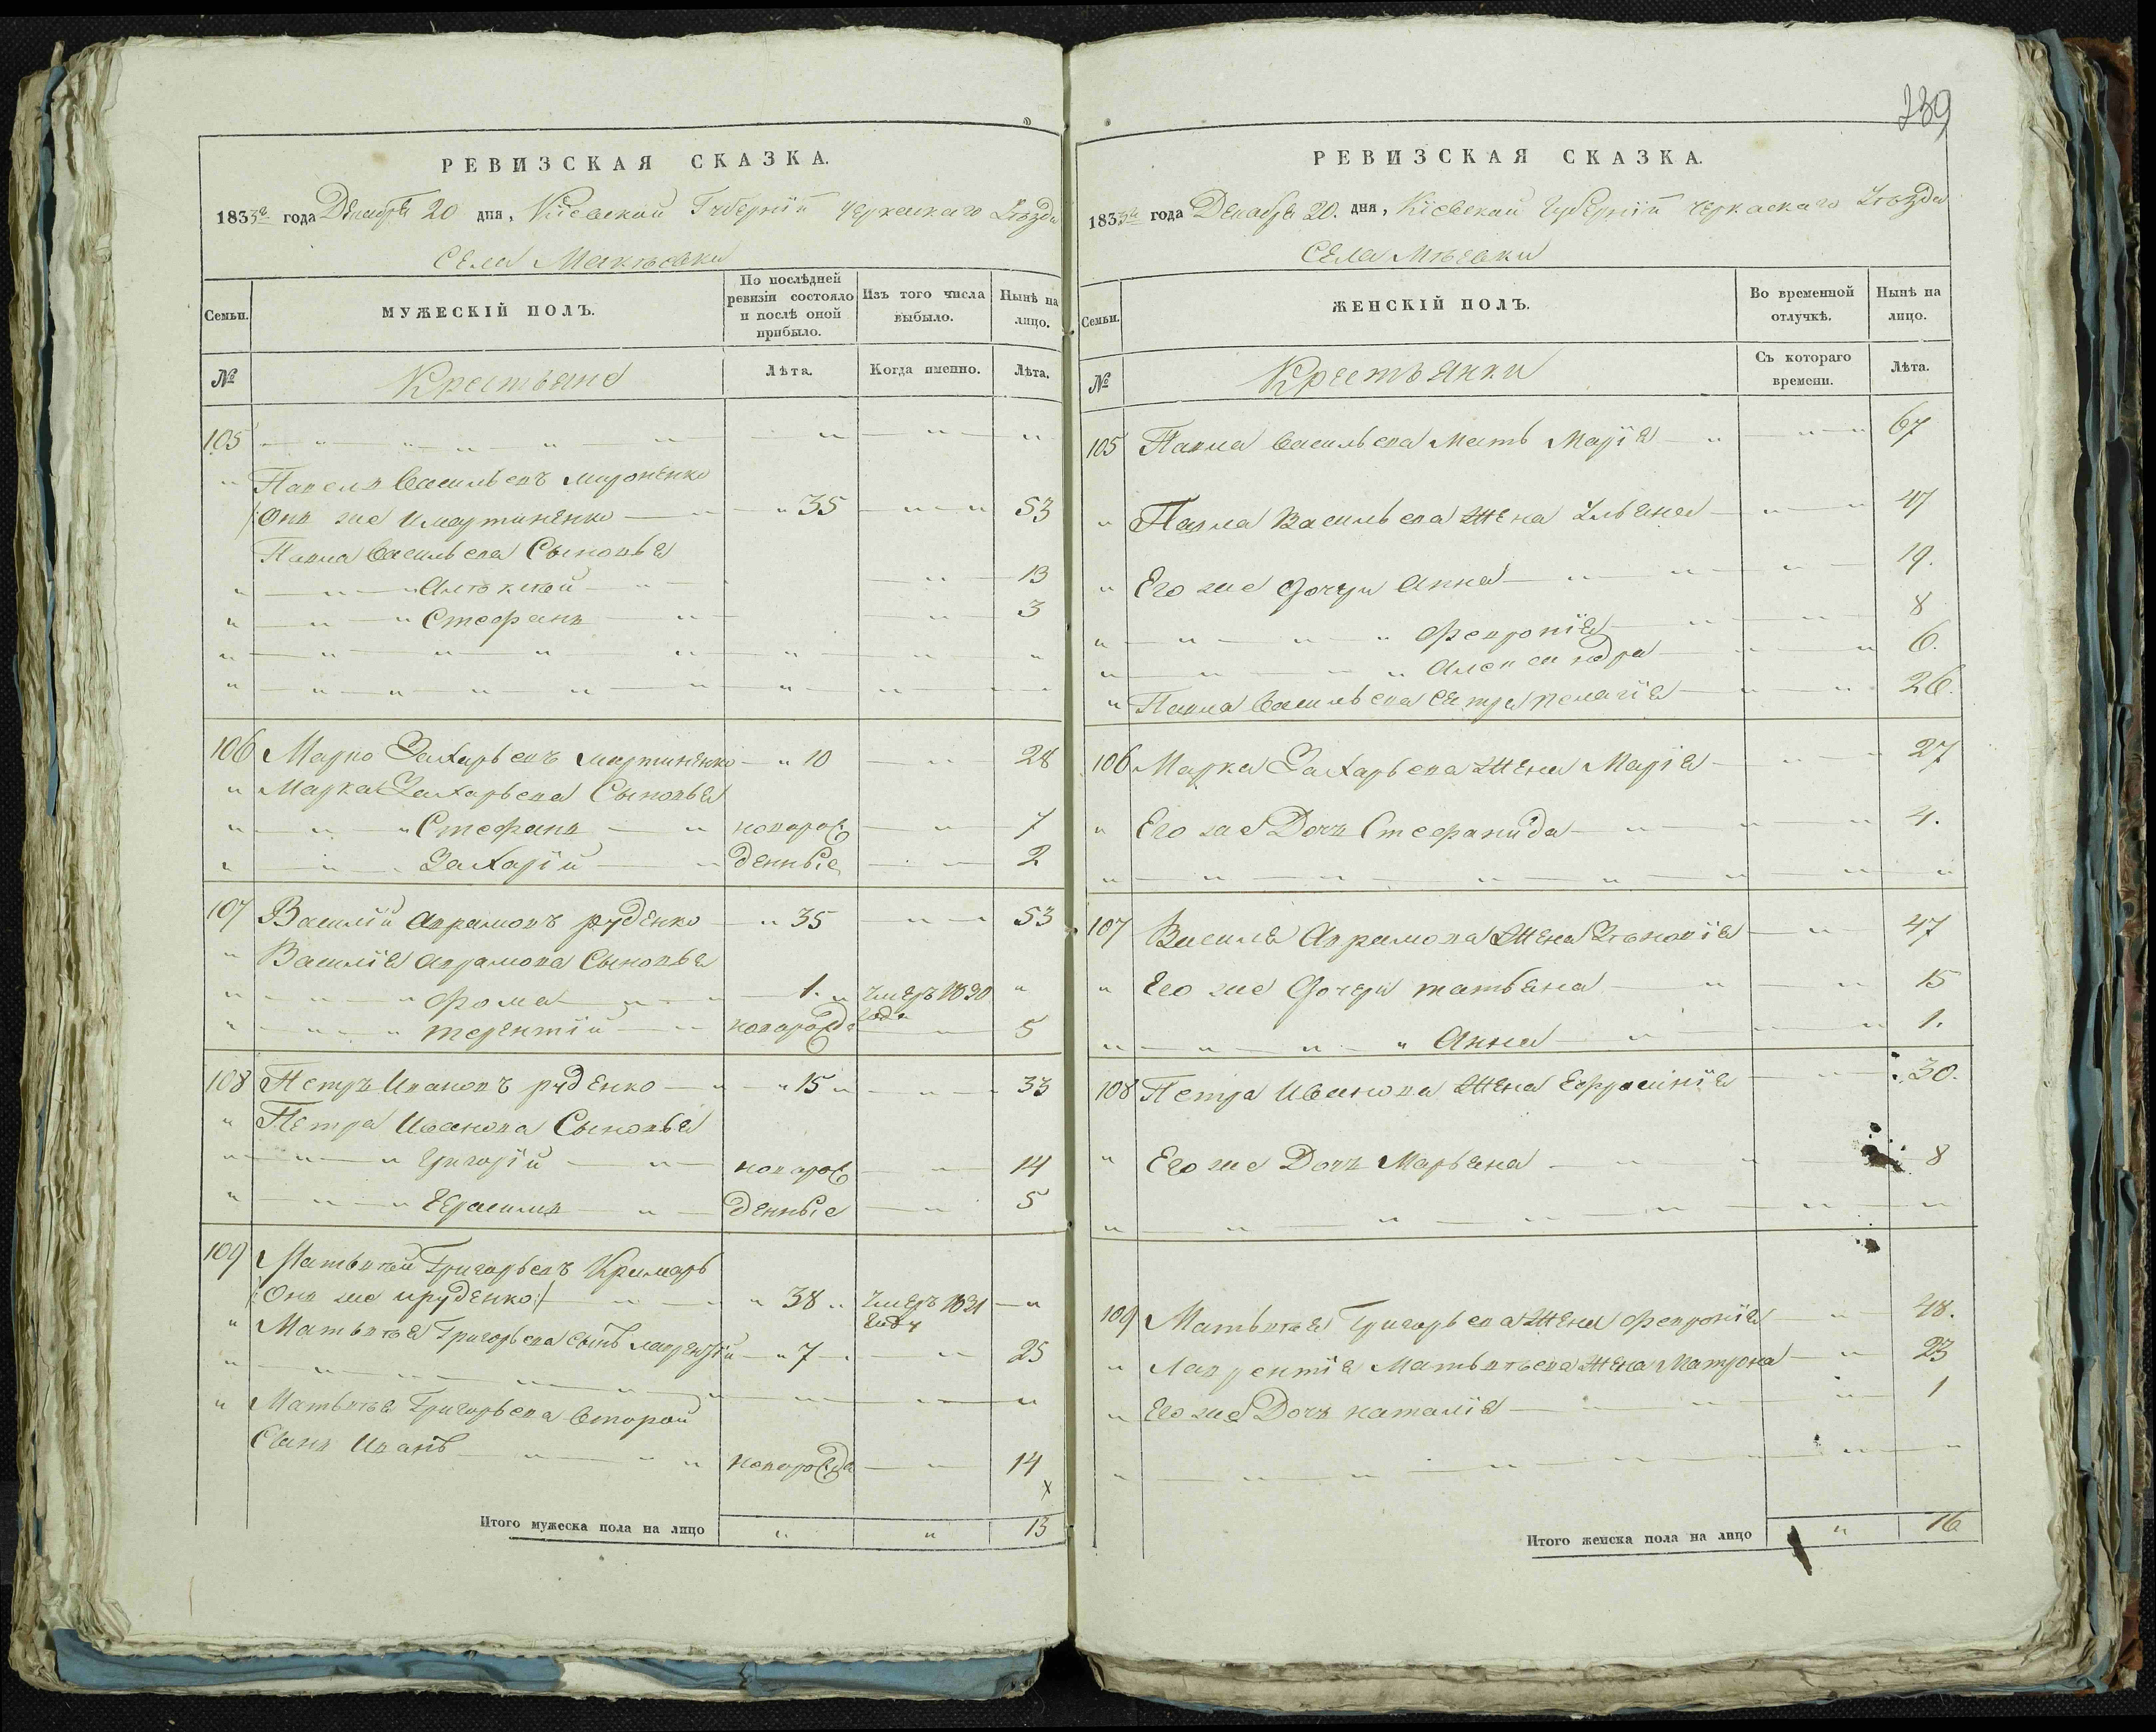 РЕВИЗСКАЯ СКАЗКА.
1833го года Декабря 20 дня, Кіевской Губерніи Черкаскаго Уѣзда
Села Макѣевки
Семьи.
МУЖЕСКІЙ ПОЛЪ.
По послѣдней ревизіи состояло и послѣ оной прибыло.
Изъ того числа выбыло.
Нынѣ на лицо.
№
Крестьяне
Лѣта.
Когда именно.
Лѣта.
105
Павелъ Васильевъ Мироненко
/Онъ же и мартиненко 35 53
Павла Васильева Сыновья
Алѣксѣй 13
Стефанъ 3
106 Марко Захарьевъ мартиненко 10 28
Марка Захарьева Сыновья
Стефанъ новорож 7
Захарій денные 2
107 Василій Аврамовъ руденко 35 53
Василія Аврамова Сыновья
Фома 1. умеръ 1820 года
терентій новорожд 5
108 Петръ Ивановъ руденко 15 33
Петра Иванова Сыновья
Григорій новорож 14
Герасимъ денные 5
109 Матвѣй Григорьевъ Кримарь
/:Онъ же и руденко:/ 38 умеръ 1831 году
Матвѣя Григорьева сынъ лаврентій 7 25
Матвѣя Григорьева второй
Сынъ Иванъ новорожде 14
х
Итого мужеска пола на лицо 13
239
РЕВИЗСКАЯ СКАЗКА.
1833го года Декабря 20. дня, Кіевской Губерніи Черкаскаго Уѣзда
Села Мѣевки
Семьи.
ЖЕНСКІЙ ПОЛЪ.
Во временной отлучкѣ.
Нынѣ на лицо.
№
Крестьянки
Съ котораго времени.
Лѣта.
105 Павла Васильева Мать Марія 67
Павла Васильева Жена Ульяна 47
Его же дочери Анна 19.
Февронія 8
Александра 6.
Павла Васильева сестра пелагія 26.
106 Марка Захарьева Жена Марія 27
Его же Дочь Стефанида 4.
107 Василя Аврамова Жена Зѣновія 47
Его же Дочери татьяна 15
Анна 1.
108 Петра Иванова Жена Ефросинія 30.
Его же Дочь Марьяна 8
109 Матвѣя Григорьева Жена Февронія 48.
Лаврентія Матвѣева Жена Матрона 23
Его же Дочь наталія 1
Итого женска пола на лицо 16